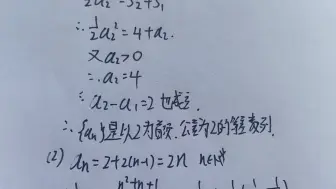 ½a₂² = S₂+S₁
∴ ½a₂² = 4+a₂
又 a₂>0
∴ a₂=4
∵ a₂-a₁=2 也成立.
∴ {aₙ}是以2为首项,公差为2的等差数列.
(2) aₙ=2+2(n-1)=2n n∈N*
n²+n+1